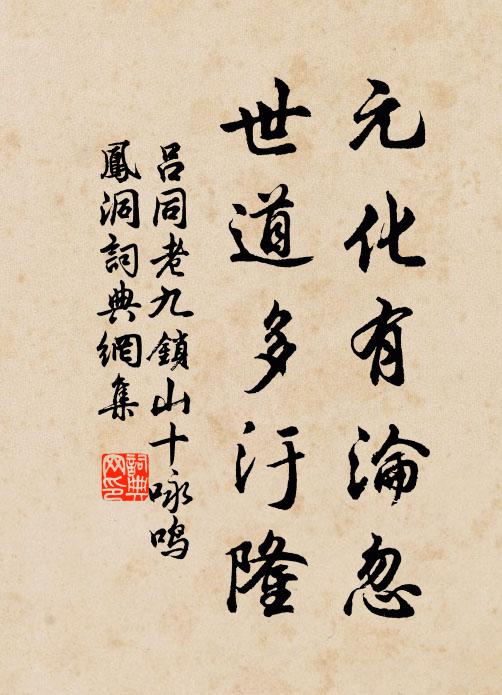 元化有淪忽
世道多汙隆
呂同老九鎖山十咏鳴
鳳洞詞典網集
詞典网印